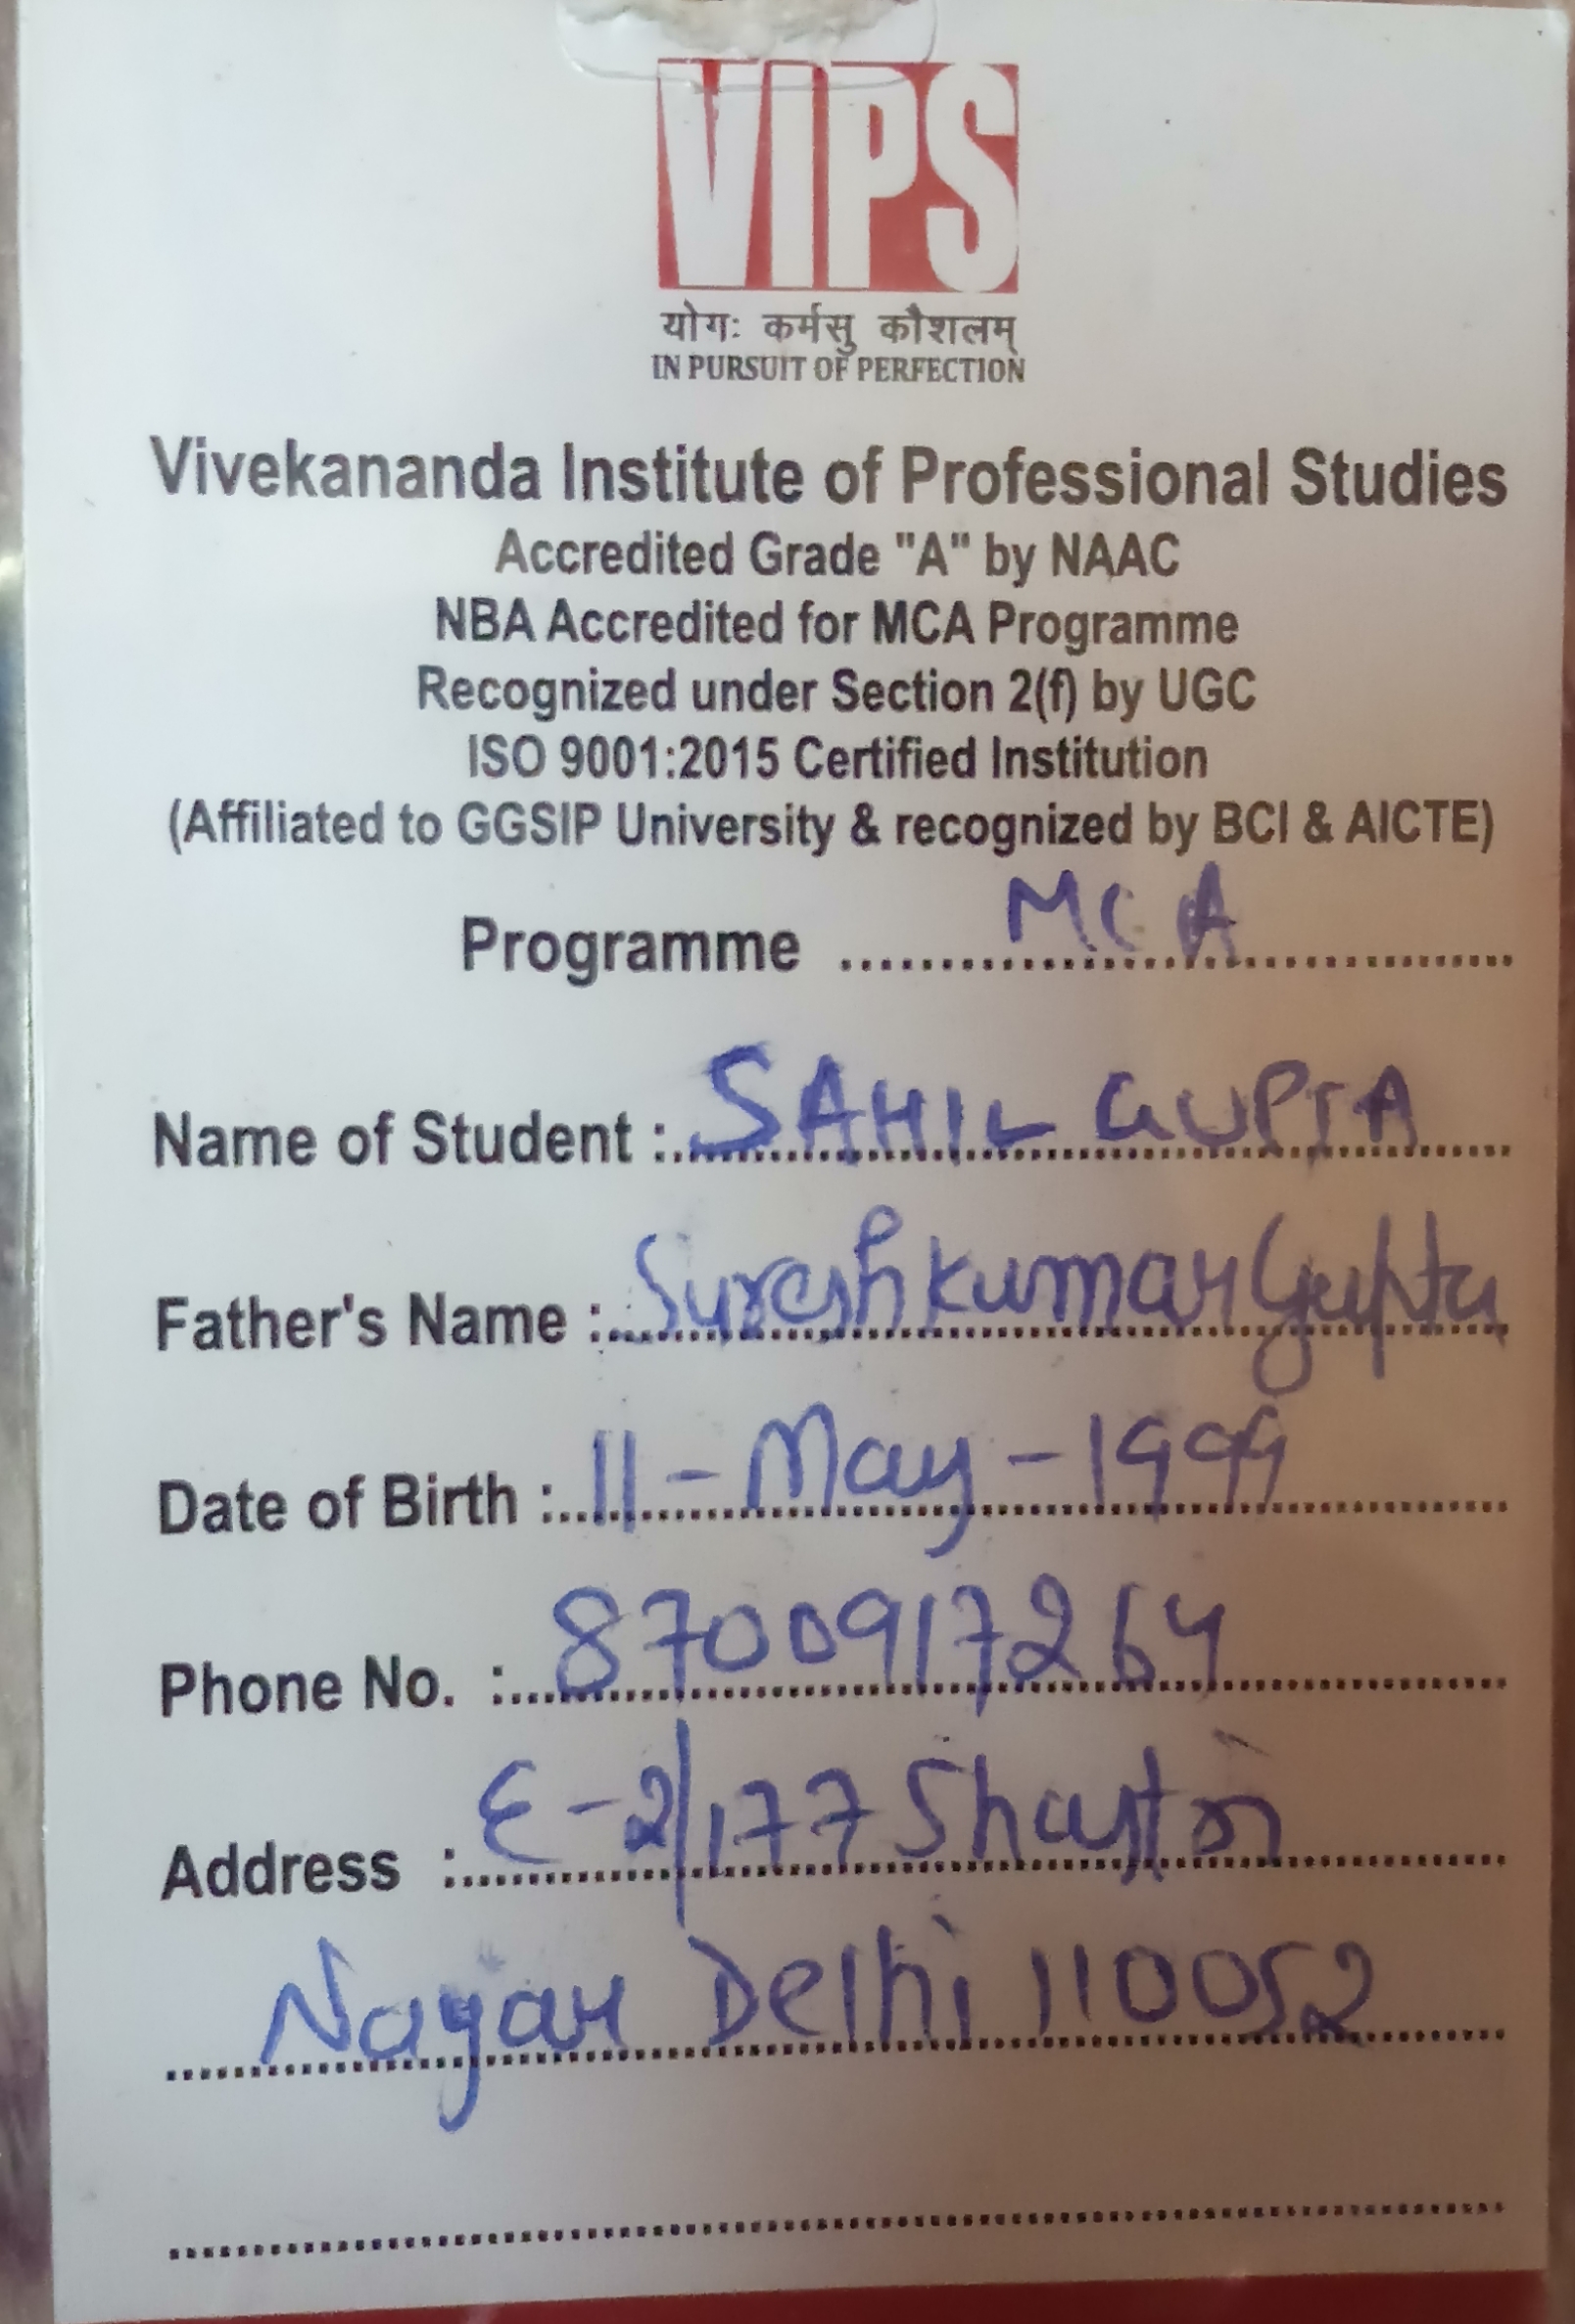 VIPS
योगः कर्मसु कौशलम्
IN PURSUIT OF PERFECTION
Vivekananda Institute of Professional Studies
Accredited Grade "A" by NAAC
NBA Accredited for MCA Programme
Recognized under Section 2(f) by UGC
ISO 9001:2015 Certified Institution
(Affiliated to GGSIP University & recognized by BCI & AICTE)
Programme MCA
Name of Student : SAHIL GUPTA
Father's Name : Suresh kumar Gupta
Date of Birth : 11-May-1999
Phone No. : 8700917264
Address : E-2/177 Shastri
Nagar Delhi 110052